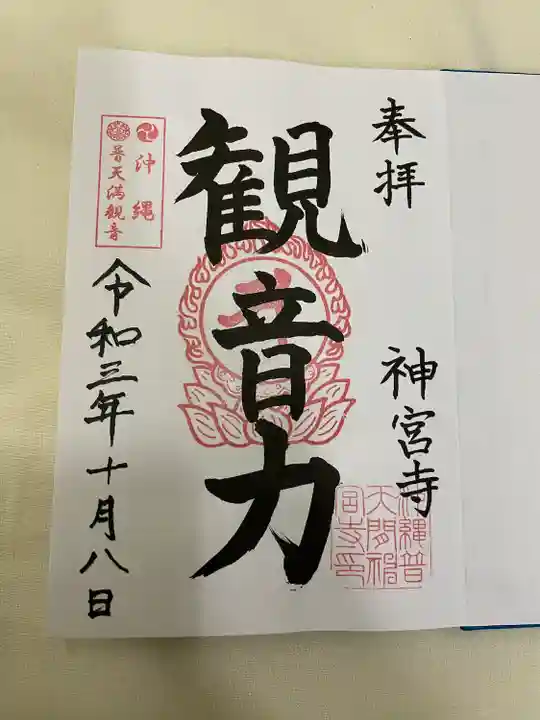 奉拝
神宮寺
観音力
沖縄
普天満観音
令和三年十月八日